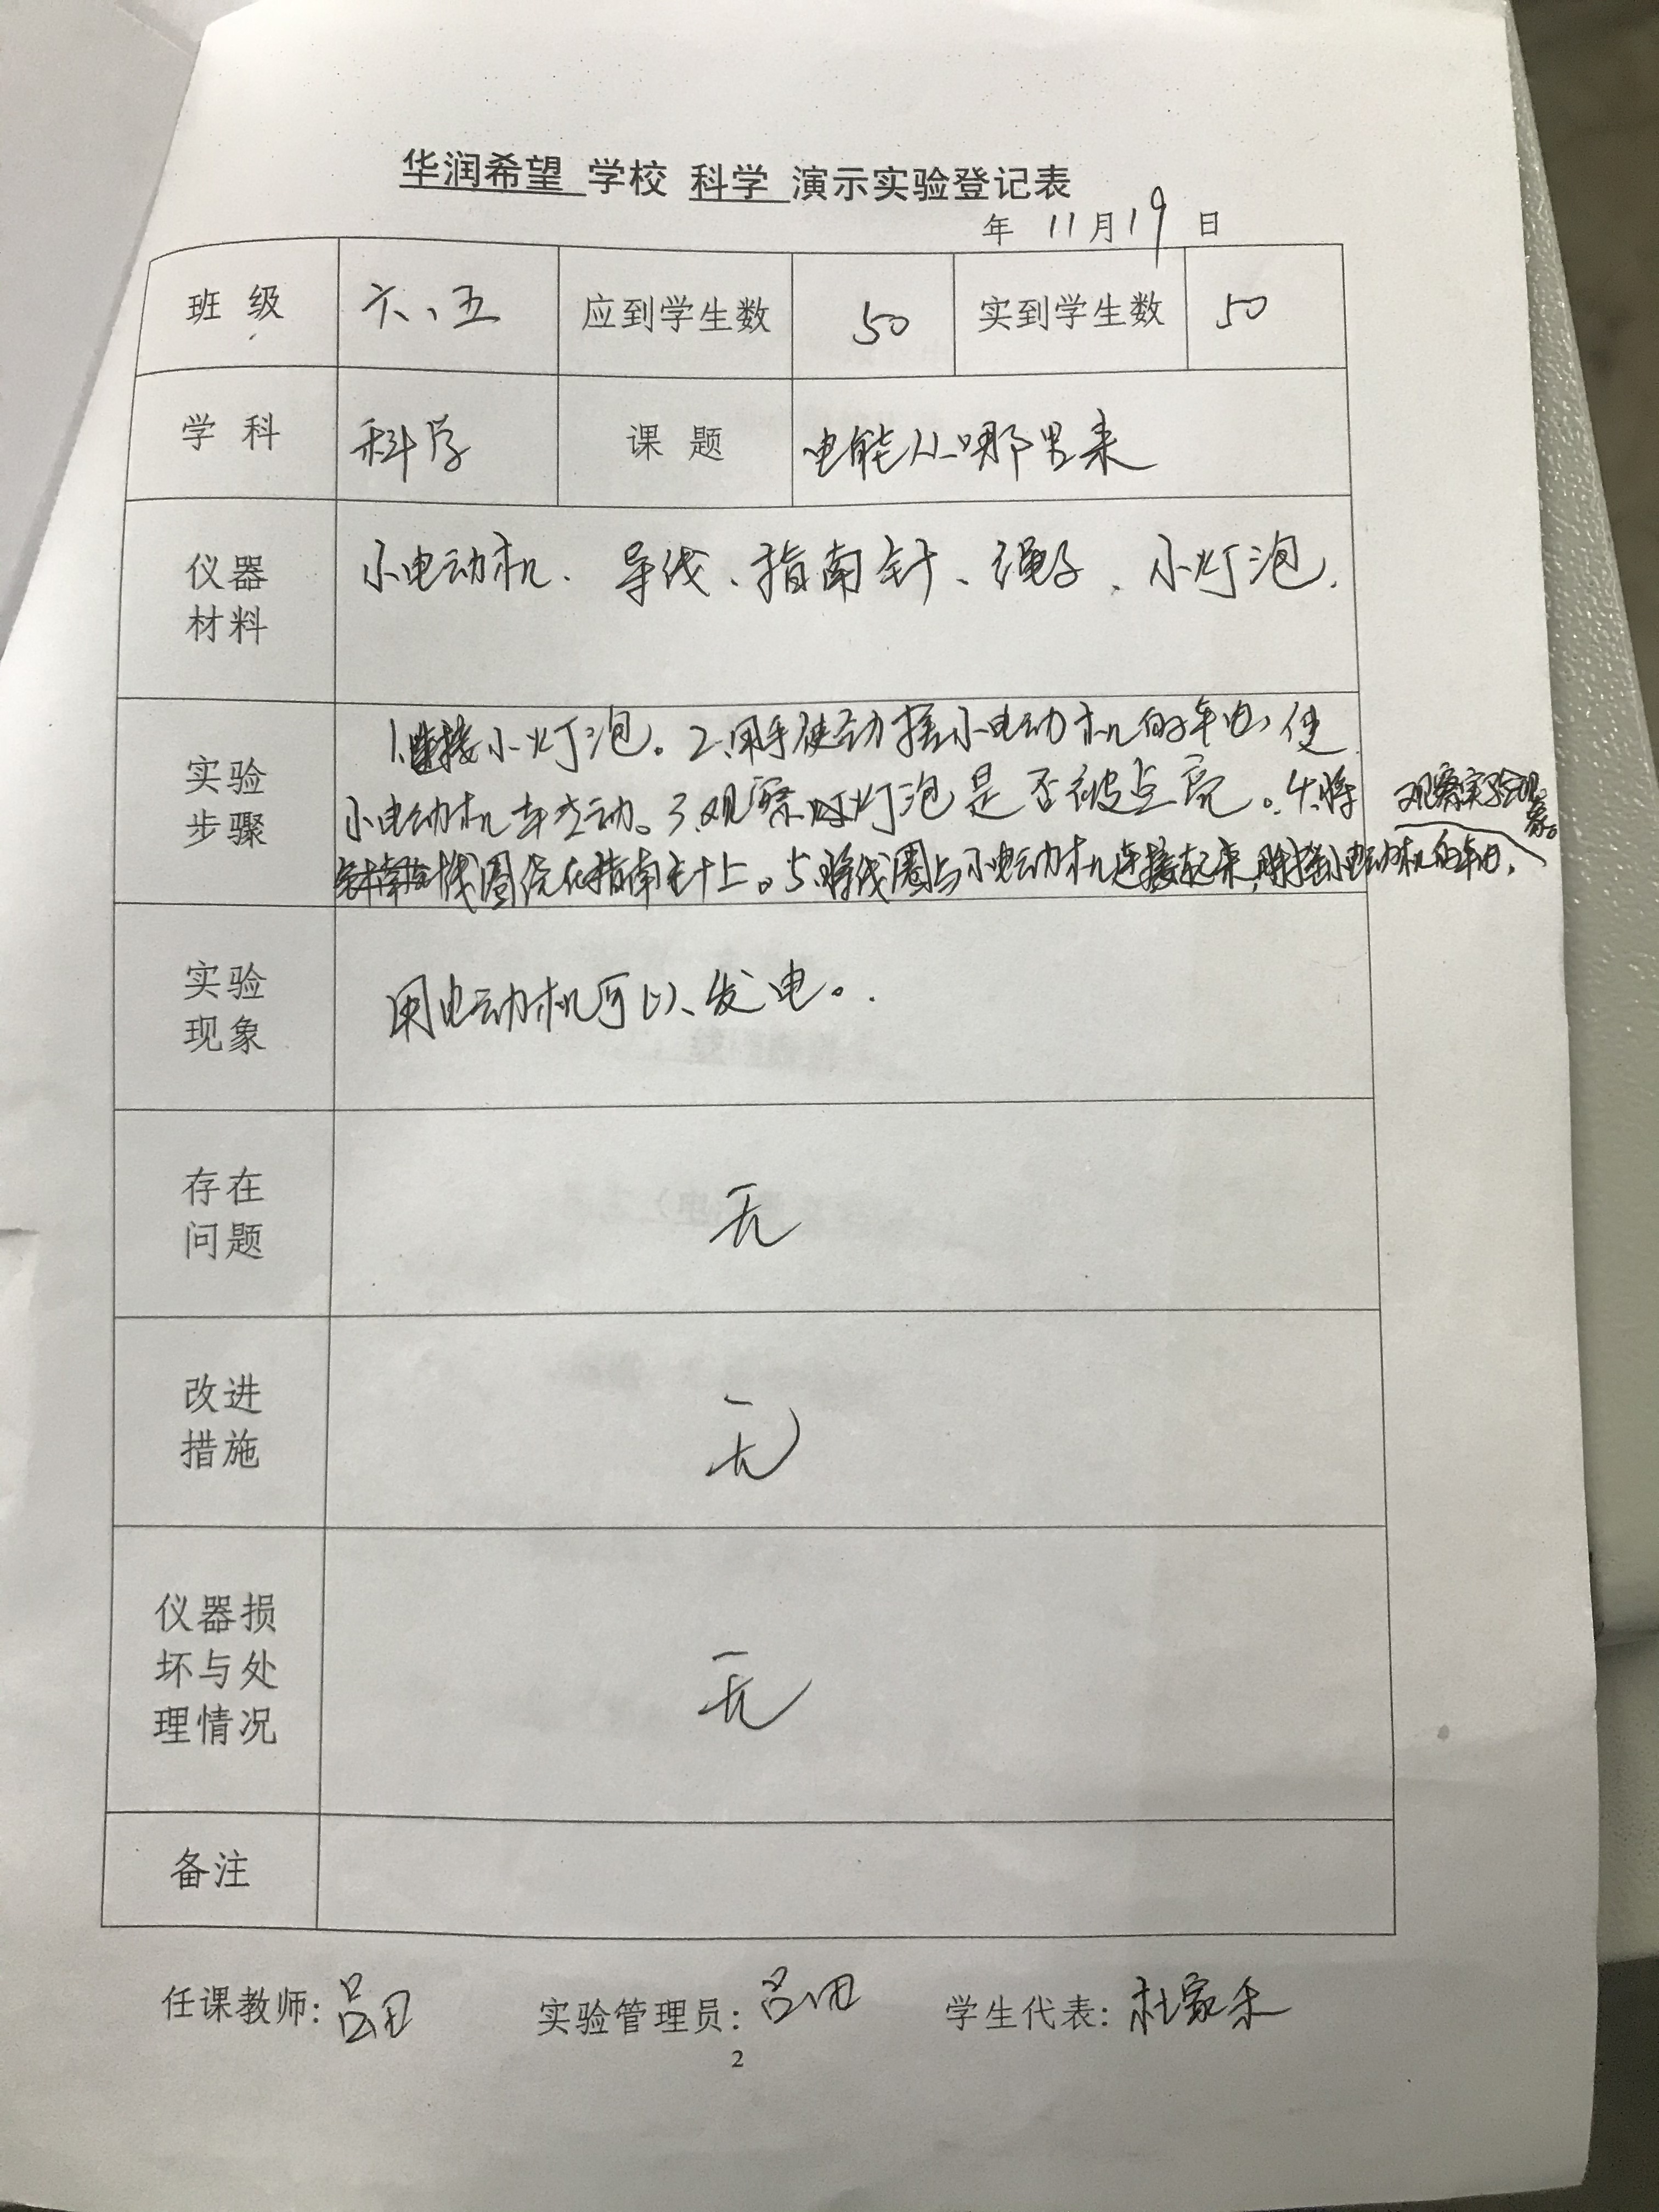 华润希望 学校 科学 演示实验登记表
年 11月19日
班级 六、五 应到学生数 50 实到学生数 50
学科 科学 课题 电能从哪里来
仪器材料 小电动机、导线、指南针、绳子、小灯泡.
实验步骤 1.连接小灯泡。2.用手使动摇小电动机的车由,使
小电动机车专动。3.观察灯泡是否被点亮。4.将
线圈绕在指南针上。5.将线圈与小电动机连接起来,小电动机的车由,
观察实验现象。
实验现象 用电动机可以发电。
存在问题 无
改进措施 无
仪器损坏与处理情况 无
备注
任课教师: 吕田 实验管理员: 吕田 学生代表: 杜家禾
2